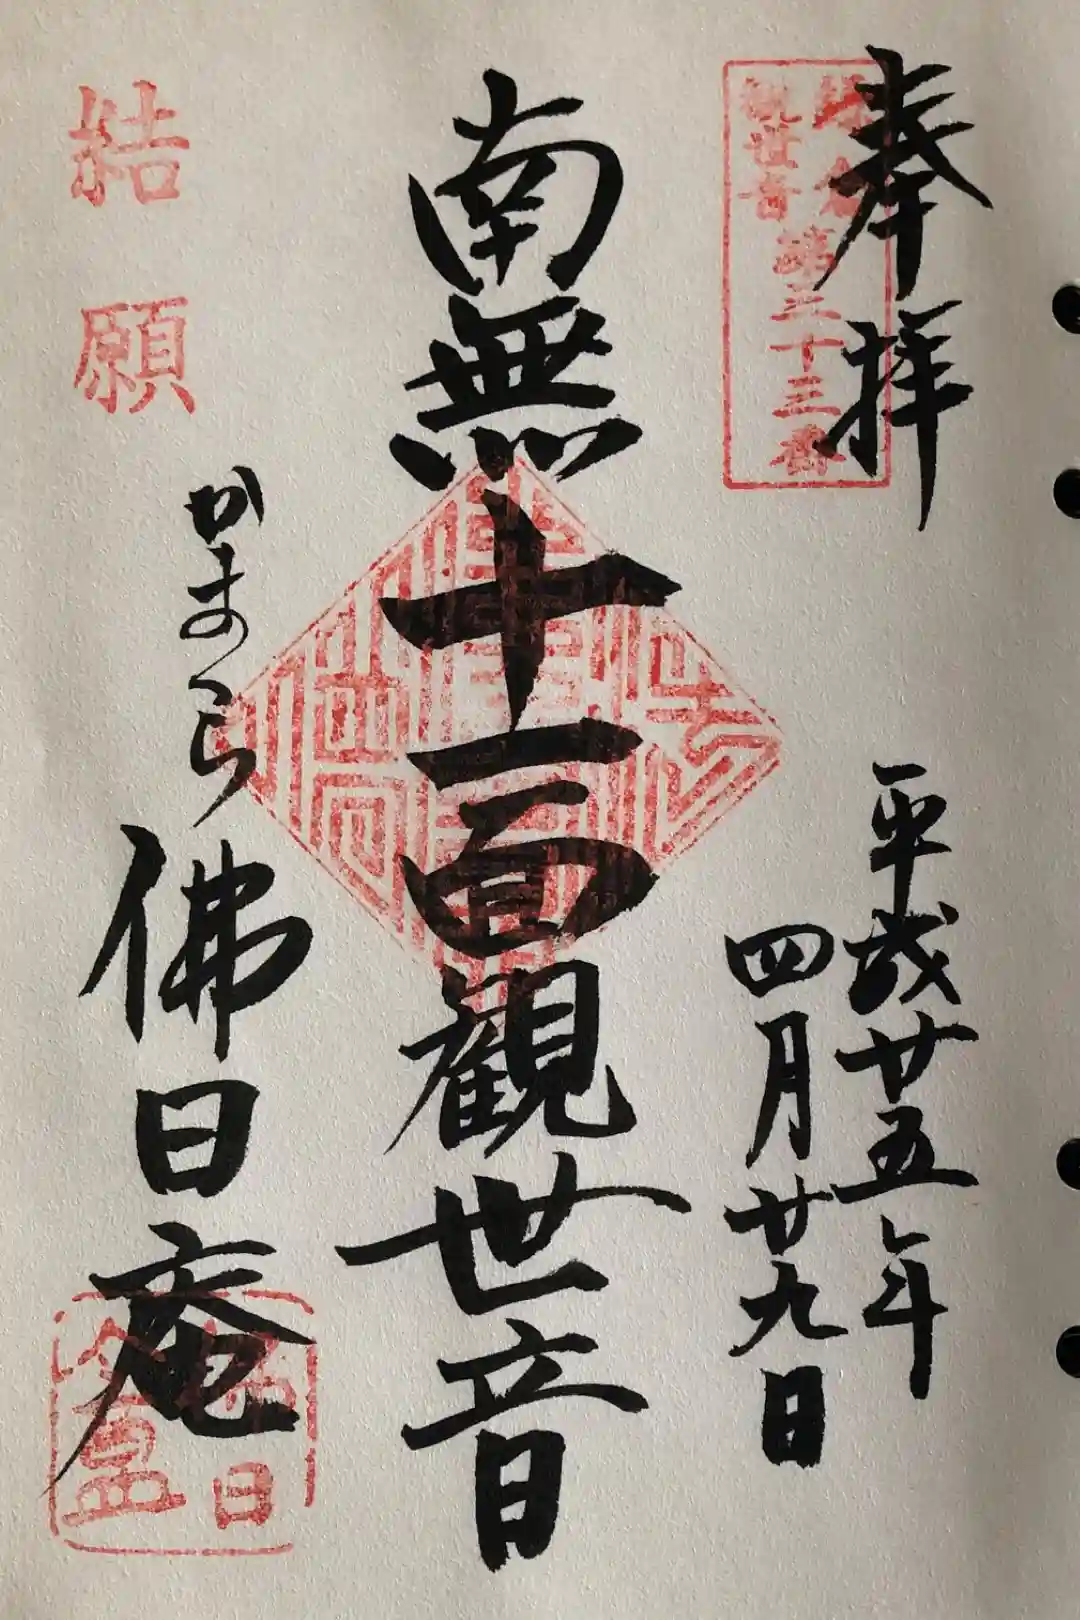 奉拝
鎌倉
観世音
第三十三番
平成廿五年
四月廿九日
南無十一面観世音
かまくら
佛日庵
結願